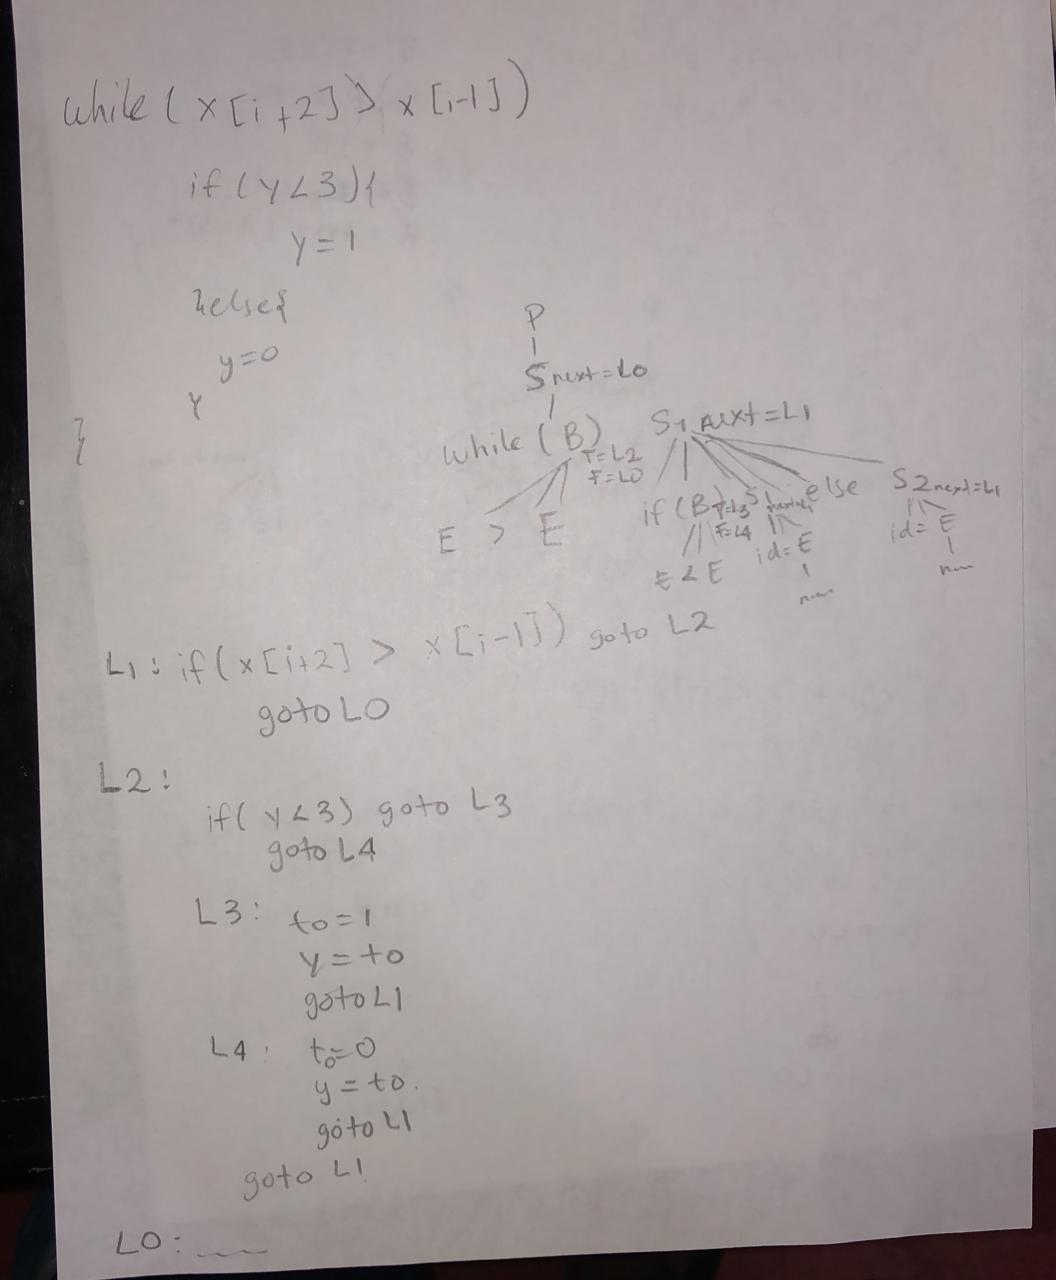 while ( x [i +2] > x [i-1] )
if ( y < 3 ) {
y = 1
}else{
y=0
}
}
P
S next = L0
while ( B ) T= L2 F= L0
S1 next = L1
E > E
if ( B ) T=L3 F=L4 S1 else S2 next=L1
E < E
id = E
id = E
num
num
L1 : if ( x [ i+2 ] > x [ i-1 ] ) goto L2
goto L0
L2 :
if( y < 3 ) goto L3
goto L4
L3 : to = 1
y = to
goto L1
L4 : to = 0
y = to.
goto L1
goto L1
L0 : ___